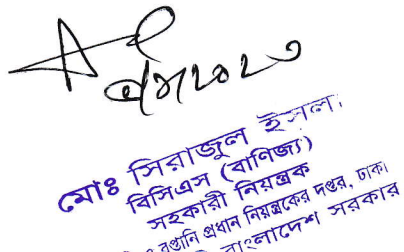 মোঃ সিরাজুল ইসলা
বিসিএস (বাণিজ্য)
সহকারী নিয়ন্ত্রক
ও রপ্তানি প্রধান নিয়ন্ত্রকের দপ্তর, ঢাকা
বাংলাদেশ সরকার